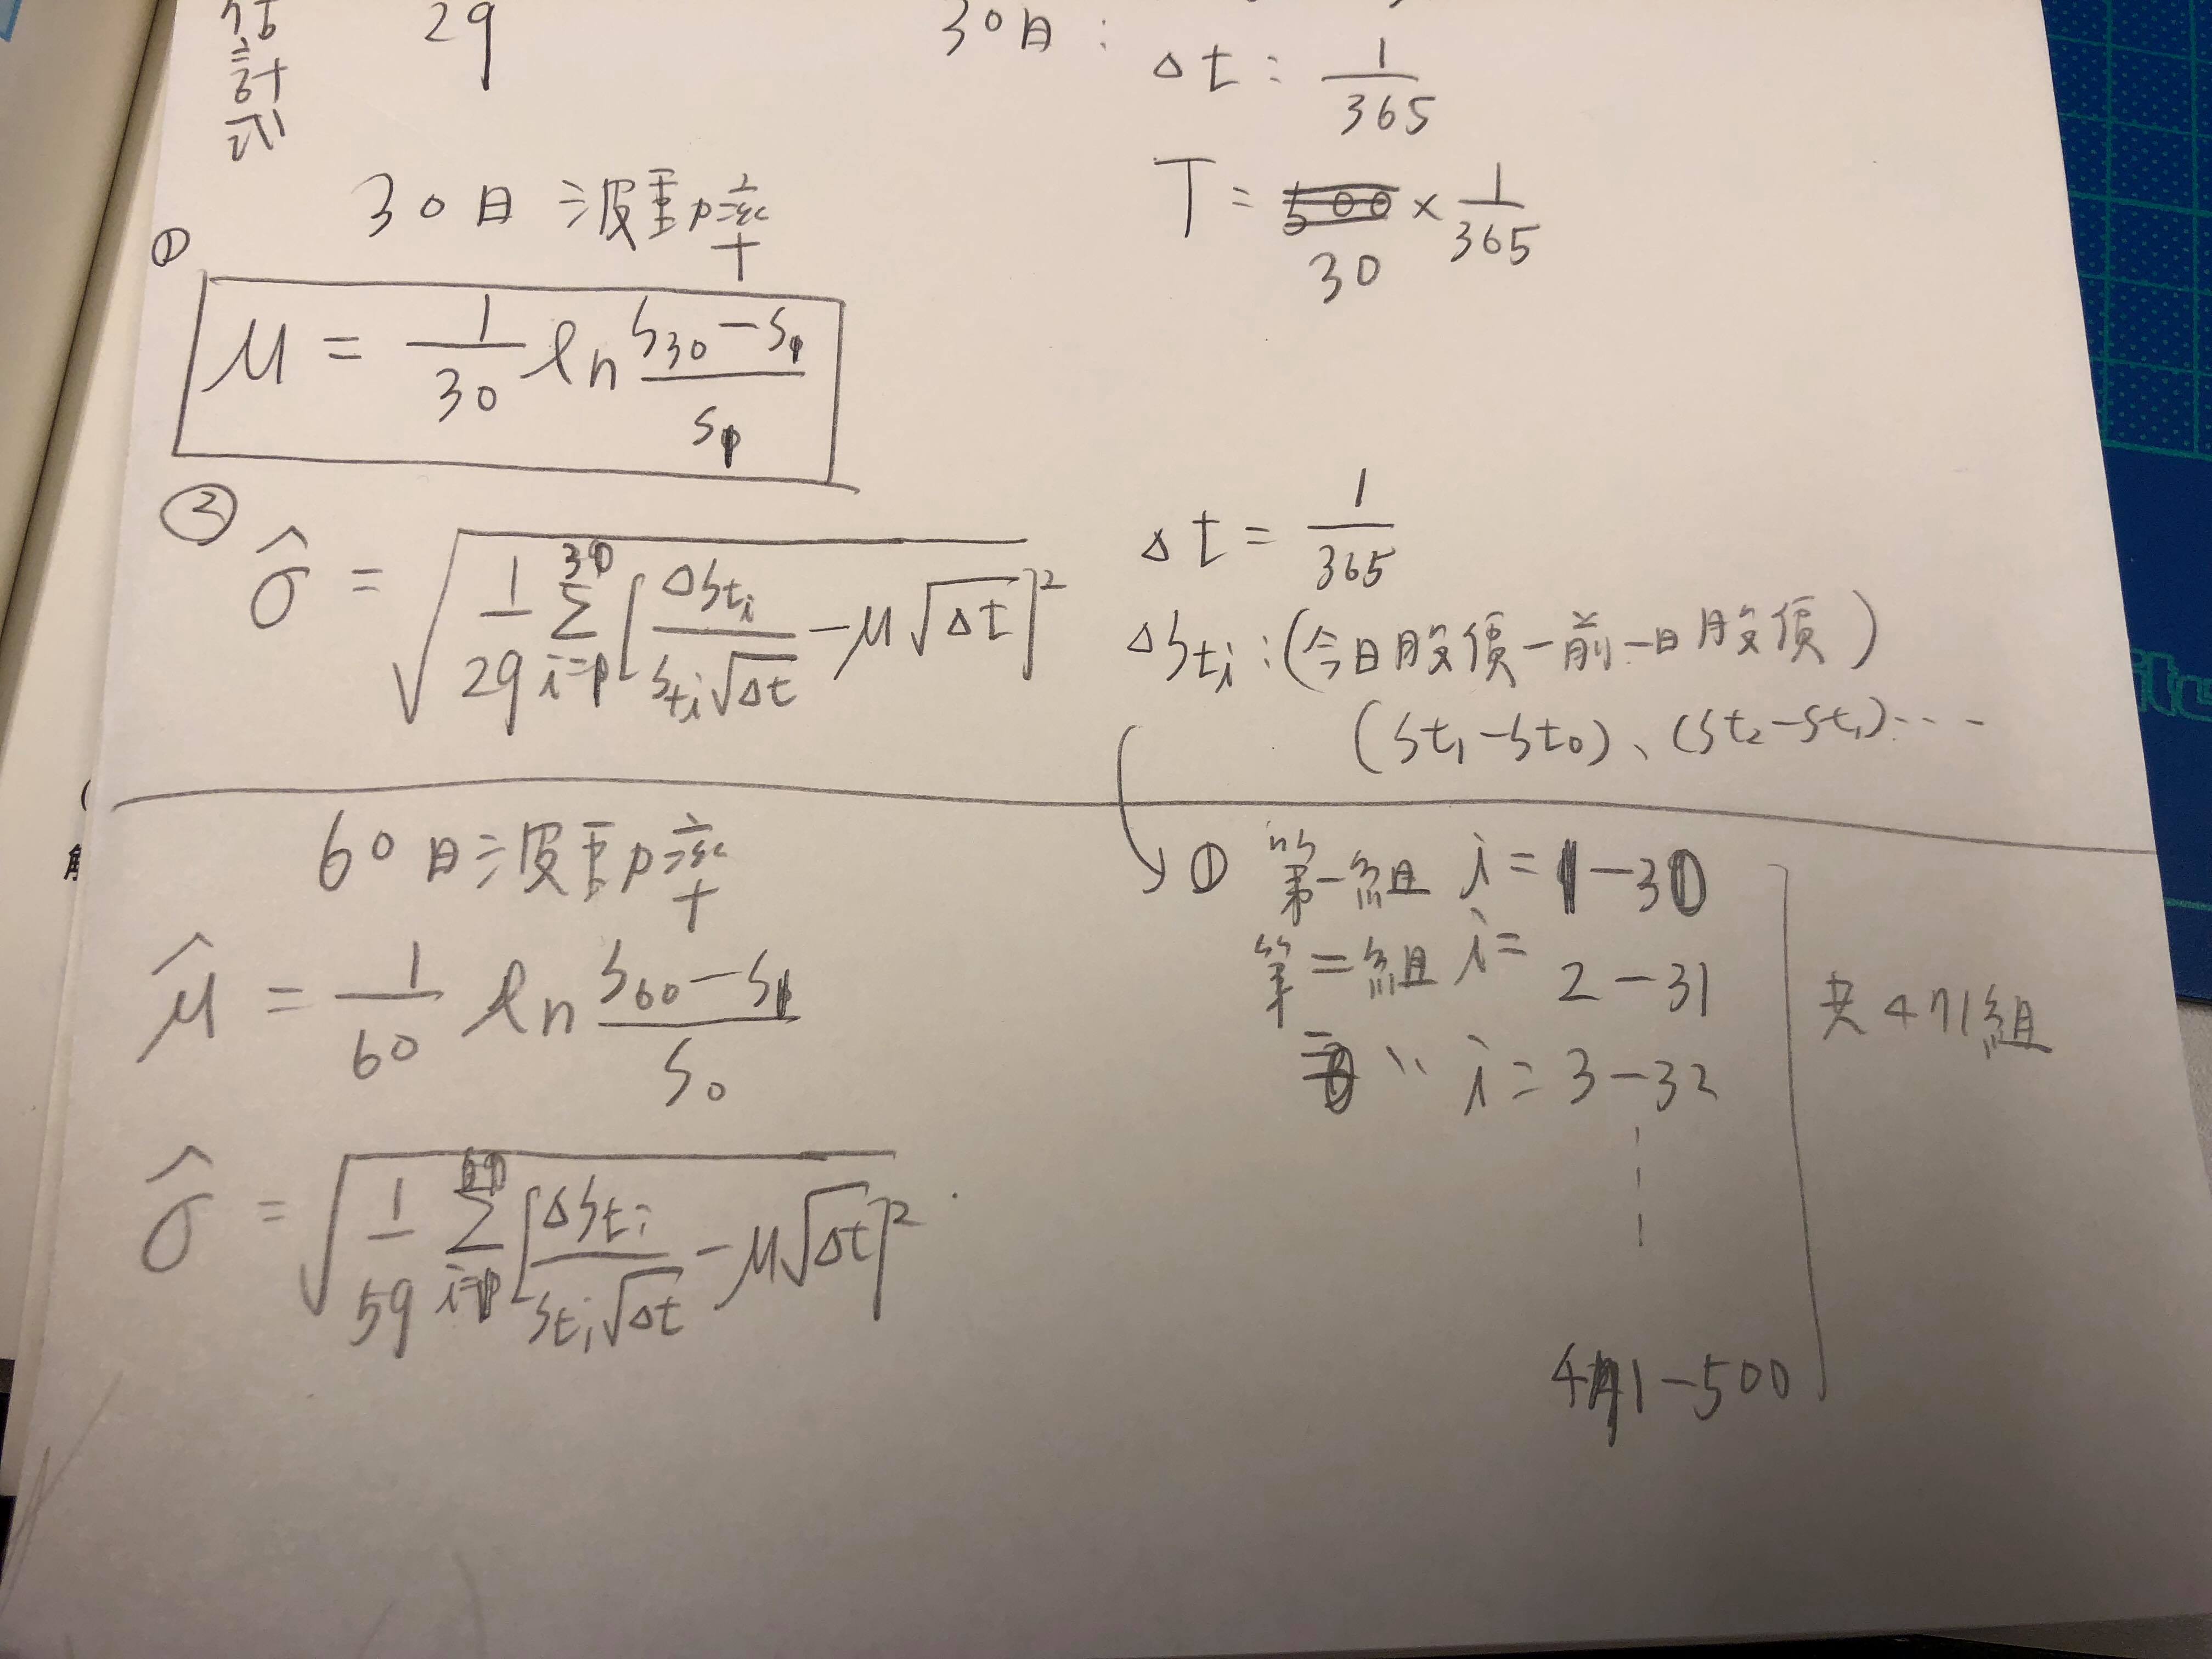 估計式
29
30日:
Δt: 1/365
T = 30 × 1/365
30日波動率
① μ = 1/30 ln (S30 − S1)/S1
② σ̂ = √(1/29 Σ_{i=1}^{30} [ΔSti/(Sti√Δt) − μ√Δt]²
Δt = 1/365
ΔSti:(今日股價−前一日股價)
(St1−St0)、(St2−St1)····
60日波動率
μ̂ = 1/60 ln (S60 − S1)/S0
σ̂ = √(1/59 Σ_{i=1}^{60} [ΔSti/(Sti√Δt) − μ√Δt]²
① 第一組 i = 1−30
第二組 i = 2−31
三 〃 i = 3−32
471−500
共471組